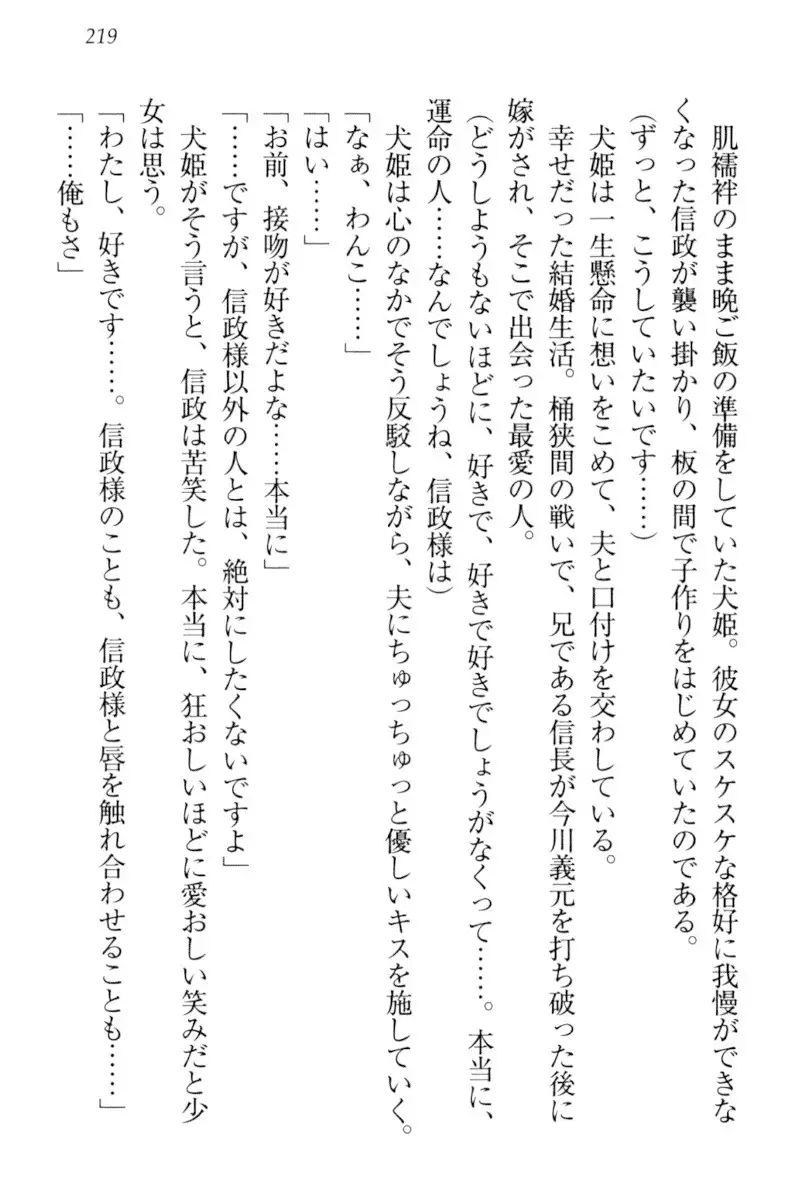 219
肌襦袢のまま晩ご飯の準備をしていた犬姫。彼女のスケスケな格好に我慢ができな
くなった信政が襲い掛かり、板の間で子作りをはじめていたのである。
（ずっと、こうしていたいです……）
犬姫は一生懸命に想いをこめて、夫と口付けを交わしている。
幸せだった結婚生活。桶狭間の戦いで、兄である信長が今川義元を打ち破った後に
嫁がされ、そこで出会った最愛の人。
（どうしようもないほどに、好きで、好きで好きでしょうがなくって……。本当に、
運命の人……なんでしょうね、信政様は）
犬姫は心のなかでそう反駁しながら、夫にちゅっちゅっと優しいキスを施していく。
「なぁ、わんこ……」
「はい……」
「お前、接吻が好きだよな……本当に」
「……ですが、信政様以外の人とは、絶対にしたくないですよ」
犬姫がそう言うと、信政は苦笑した。本当に、狂おしいほどに愛おしい笑みだと少
女は思う。
「わたし、好きです……。信政様のことも、信政様と唇を触れ合わせることも……」
「……俺もさ」